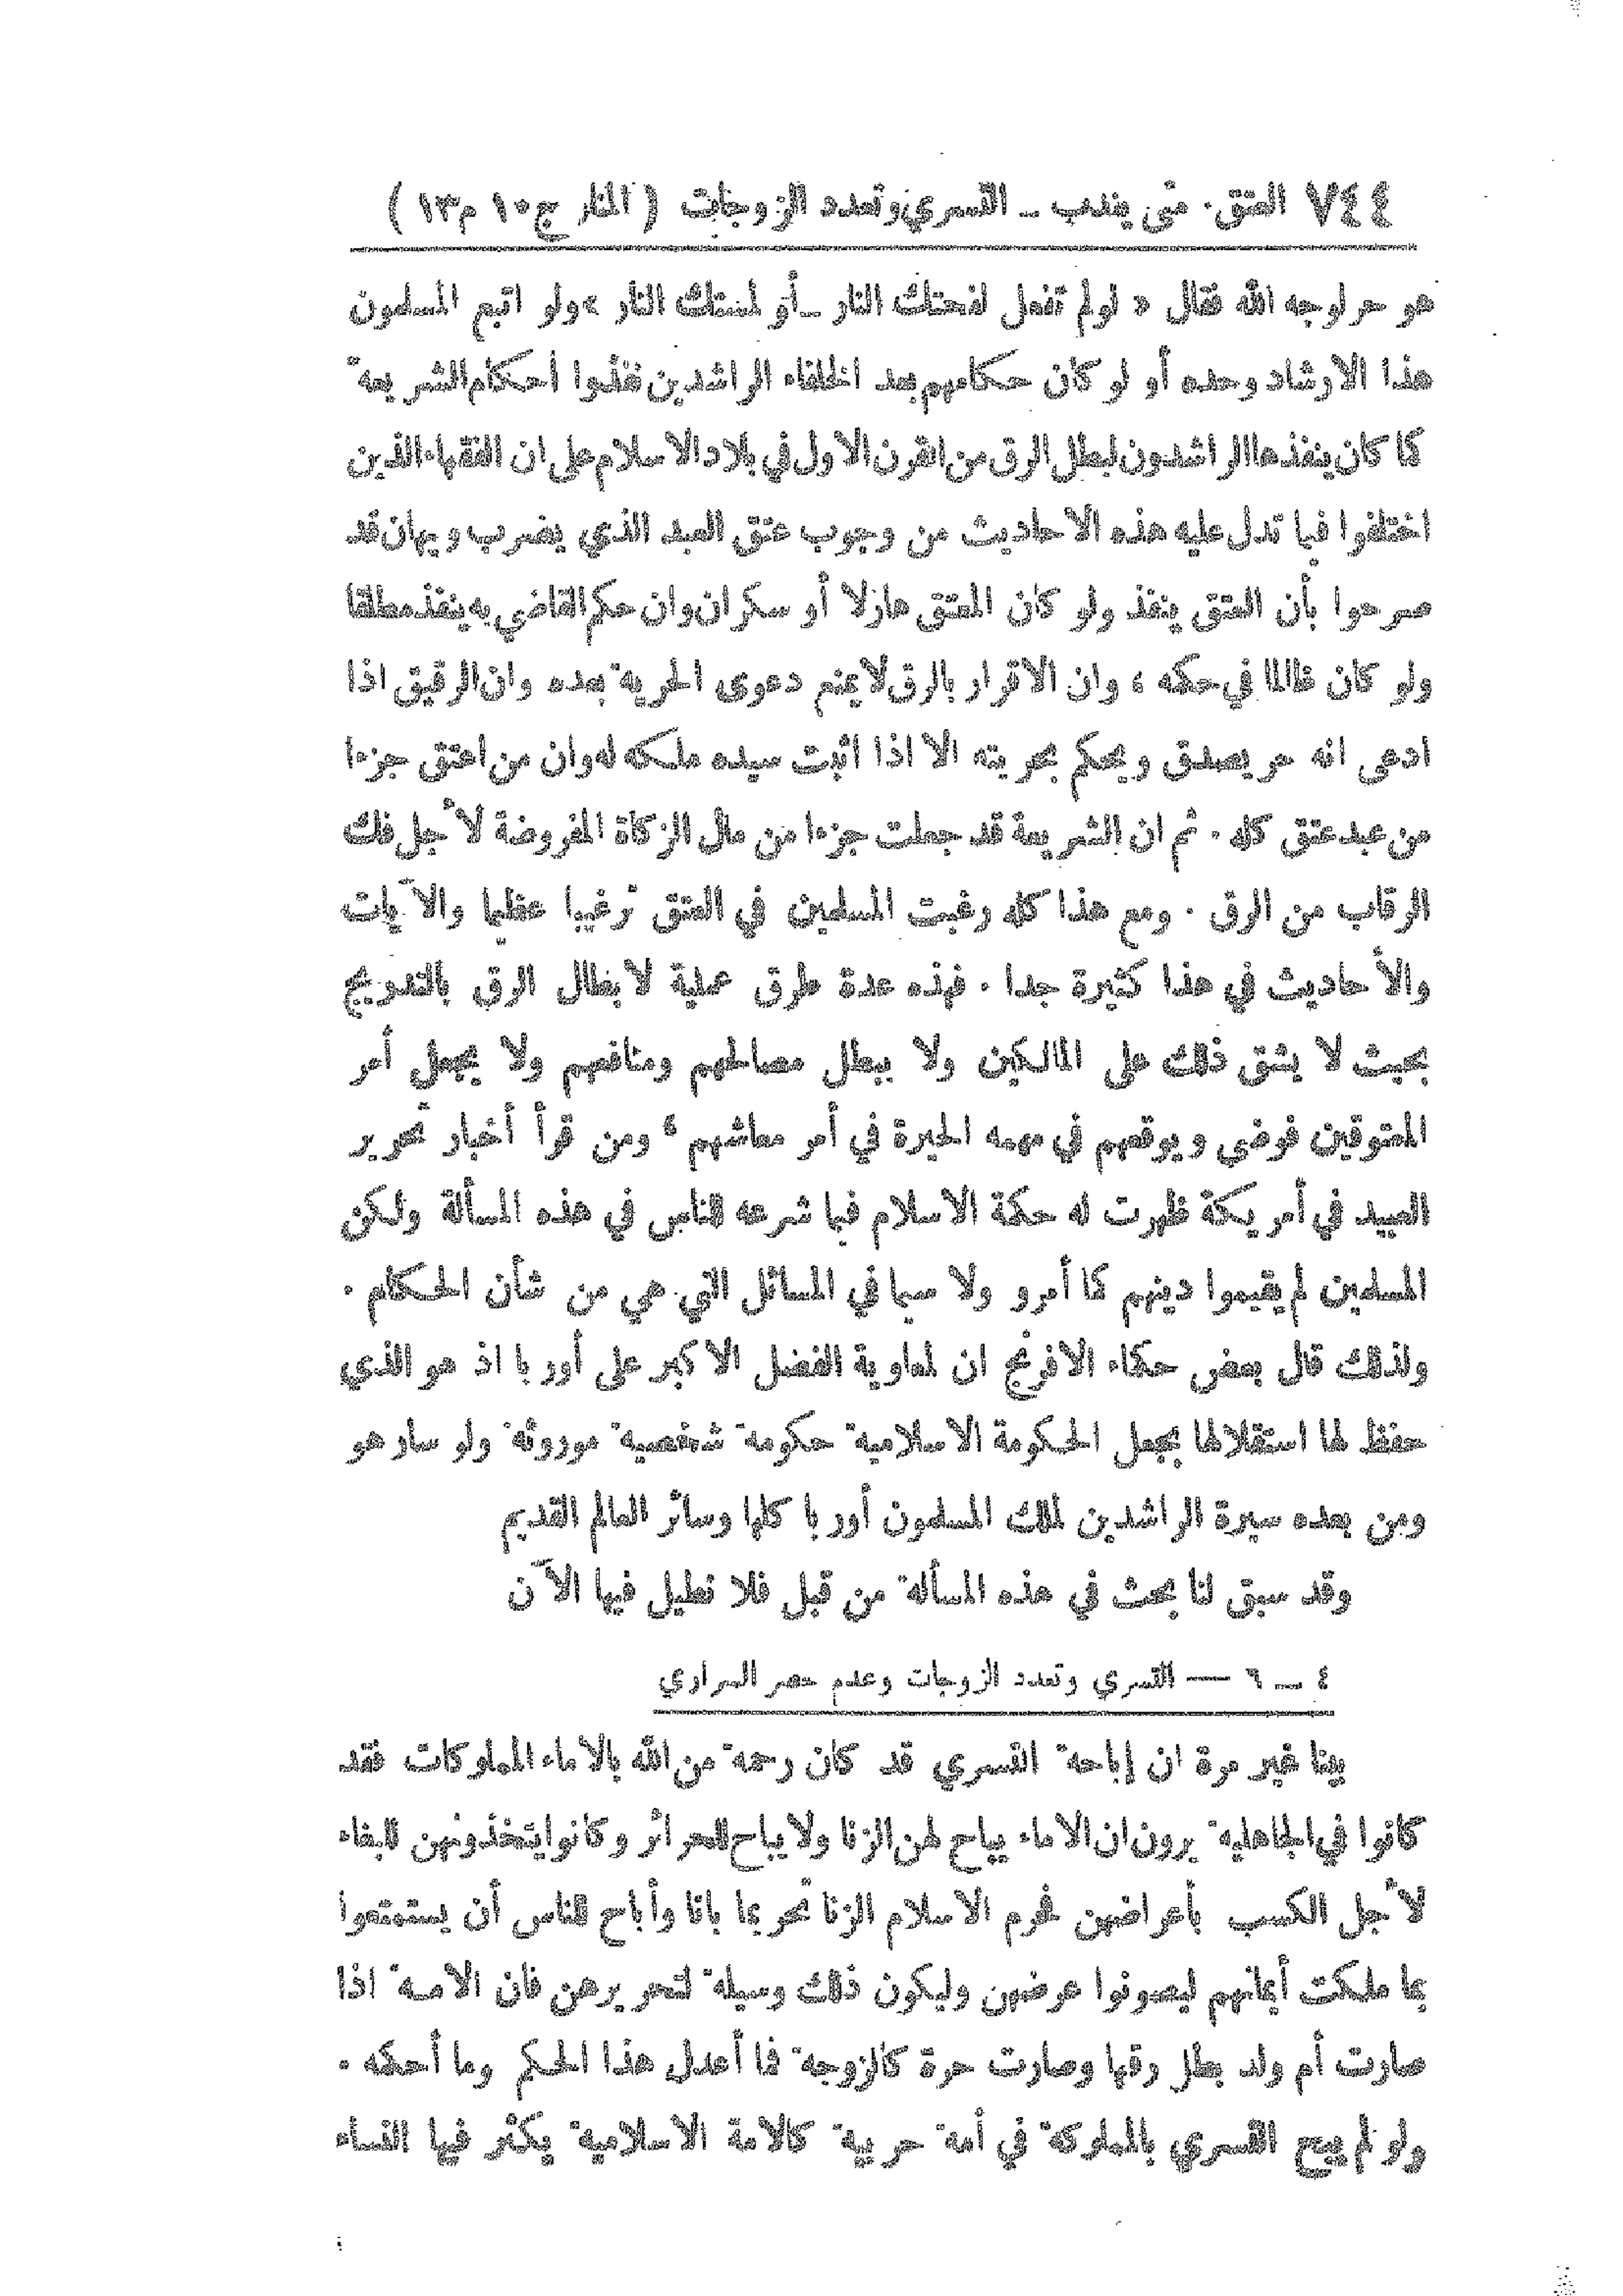 ٧٤٤ العتق. متى يندب ــ التسري وتعدد الزوجات ( المنار ج ١٠ م ١٣ )
هو حر لوجه الله فقال « لو لم تفعل لفحتك النار ــ أو لمستك النار » ولو اتبع المسلمون
هذا الارشاد وحده أو لو كان حكامهم بعد الخلفاء الراشدين نفذوا أحكام الشريعة
كما كان ينفذها الراشدون لبطل الرق من القرن الاول في بلاد الاسلام على ان الفقهاء الذين
اختلفوا فيما تدل عليه هذه الاحاديث من وجوب عتق العبد الذي يضرب ويهان قد
صرحوا بأن العتق ينفذ ولو كان المعتق هازلا أو سكران وان حكم القاضي به ينفذ مطلقا
ولو كان ظالما في حكمه ، وان الاقرار بالرق لا يمنع دعوى الحرية بعده وان الرقيق اذا
ادعى انه حر يصدق ويحكم بحريته الا اذا اثبت سيده ملكه له وان من اعتق جزءا
من عبد عتق كله . ثم ان الشريعة قد جعلت جزءا من مال الزكاة المفروضة لأجل فك
الرقاب من الرق . ومع هذا كله رغبت المسلمين في العتق ترغيبا عظيما والآيات
والأحاديث في هذا كثيرة جدا . فهذه عدة طرق عملية لابطال الرق بالتدريج
بحيث لا يشق ذلك على المالكين ولا يبطل مصالحهم ومنافعهم ولا يجعل أمر
المعتوقين فوضى ويوقعهم في مهمه الحيرة في أمر معاشهم ؛ ومن قرأ أخبار تحرير
العبيد في أمريكة ظهرت له حكمة الاسلام فيما شرعه للناس في هذه المسألة ولكن
المسلمين لم يقيموا دينهم كما أمرو ولا سيما في المسائل التي هي من شأن الحكام .
ولذلك قال بعض حكماء الافرنج ان لمعاوية الفضل الاكبر على أوربا اذ هو الذي
حفظ لها استقلالها بجعل الحكومة الاسلامية حكومة شخصية موروثة ولو سار هو
ومن بعده سيرة الراشدين لملك المسلمون أوربا كلها وسائر العالم القديم
وقد سبق لنا بحث في هذه المسألة من قبل فلا نطيل فيها الآن
٤ ــ ٦ — التسري وتعدد الزوجات وعدم حصر السراري
بينا غير مرة ان إباحة التسري قد كان رحمة من الله بالاماء المملوكات فقد
كانوا في الجاهلية يرون ان الاماء يباح لهن الزنا ولا يباح للحرائر وكانوا يتخذونهن للبغاء
لأجل الكسب بأعراضهن فحرم الاسلام الزنا تحريما باتا وأباح للناس أن يستمتعوا
بما ملكت أيمانهم ليصونوا عرضهن وليكون ذلك وسيلة لتحريرهن فان الامة اذا
صارت أم ولد بطل رقها وصارت حرة كالزوجة فما أعدل هذا الحكم وما أحكمه .
ولو لم يبح التسري بالمملوكة في أمة حربية كالامة الاسلامية يكثر فيها النساء